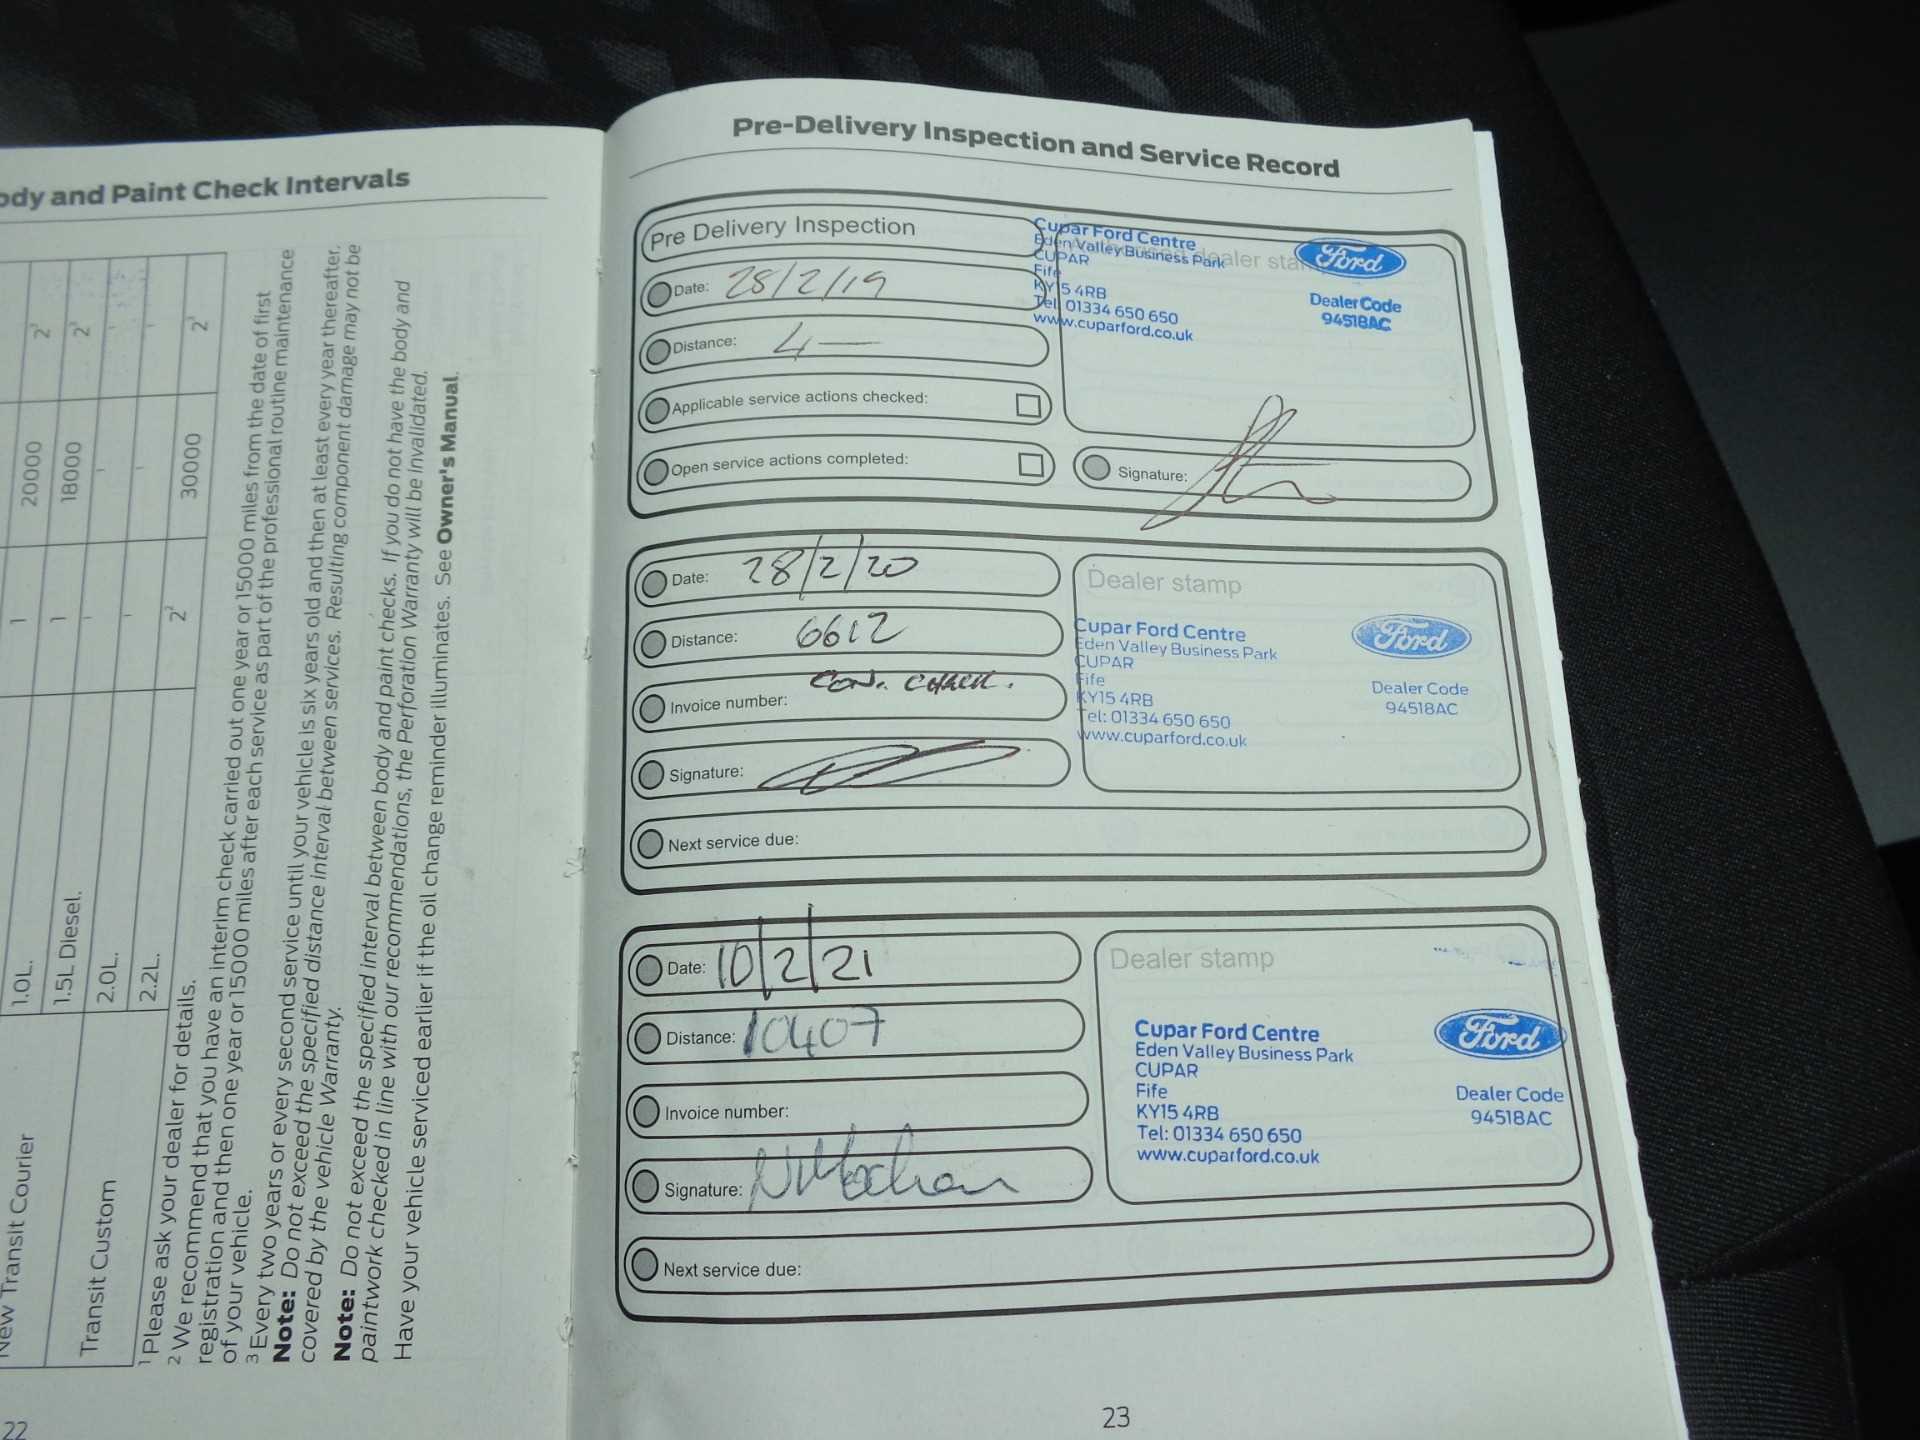 ody and Paint Check Intervals
1.0L. 1 20000 2³
1.5L Diesel. 1 18000 2³
2.0L. - - -
2.2L. - - -
2² 30000 2³
New Transit Courier
Transit Custom
¹ Please ask your dealer for details.
² We recommend that you have an interim check carried out one year or 15000 miles from the date of first
registration and then one year or 15000 miles after each service as part of the professional routine maintenance
of your vehicle.
³ Every two years or every second service until your vehicle is six years old and then at least every year thereafter.
Note: Do not exceed the specified distance interval between services. Resulting component damage may not be
covered by the vehicle Warranty.
Note: Do not exceed the specified interval between body and paint checks. If you do not have the body and
paintwork checked in line with our recommendations, the Perforation Warranty will be invalidated.
Have your vehicle serviced earlier if the oil change reminder illuminates. See Owner's Manual.
22
Pre-Delivery Inspection and Service Record
Pre Delivery Inspection
Date: 28/2/19
Distance: 4 —
Applicable service actions checked:
Open service actions completed:
dealer stamp
Cupar Ford Centre
Eden Valley Business Park
CUPAR
Fife
KY15 4RB
Tel: 01334 650 650
www.cuparford.co.uk
Ford
Dealer Code
94518AC
Signature:
Date: 28/2/20
Distance: 6612
Invoice number: CON. CHECK.
Signature:
Next service due:
Dealer stamp
Cupar Ford Centre
Eden Valley Business Park
CUPAR
Fife
KY15 4RB
Tel: 01334 650 650
www.cuparford.co.uk
Ford
Dealer Code
94518AC
Date: 10/2/21
Distance: 10407
Invoice number:
Signature:
Next service due:
Dealer stamp
Cupar Ford Centre
Eden Valley Business Park
CUPAR
Fife
KY15 4RB
Tel: 01334 650 650
www.cuparford.co.uk
Ford
Dealer Code
94518AC
23